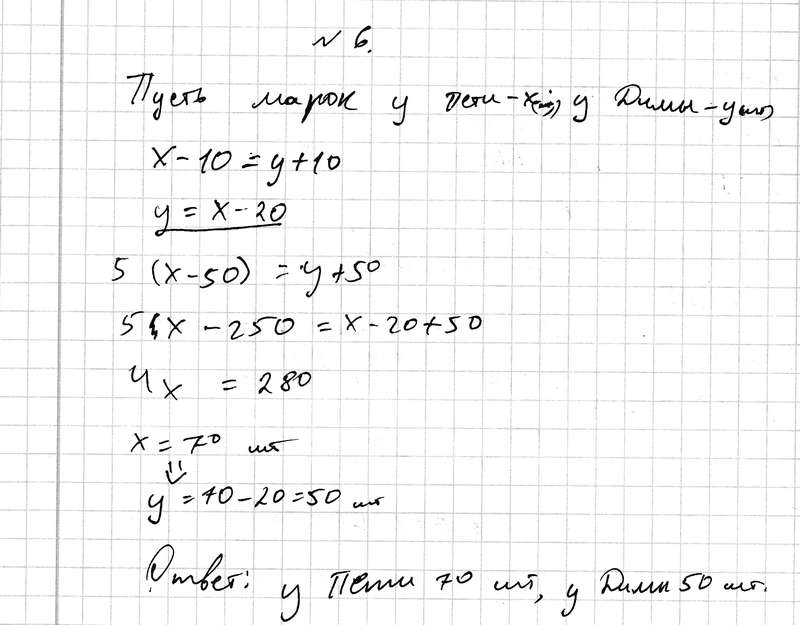 № 6.
Пусть марок у Пети – x(шт), у Димы – y(шт)
x – 10 = y + 10
y = x – 20
5 (x – 50) = y + 50
5x – 250 = x – 20 + 50
4x = 280
x = 70 шт
⇓
y = 70 – 20 = 50 шт
Ответ: у Пети 70 шт, у Димы 50 шт.